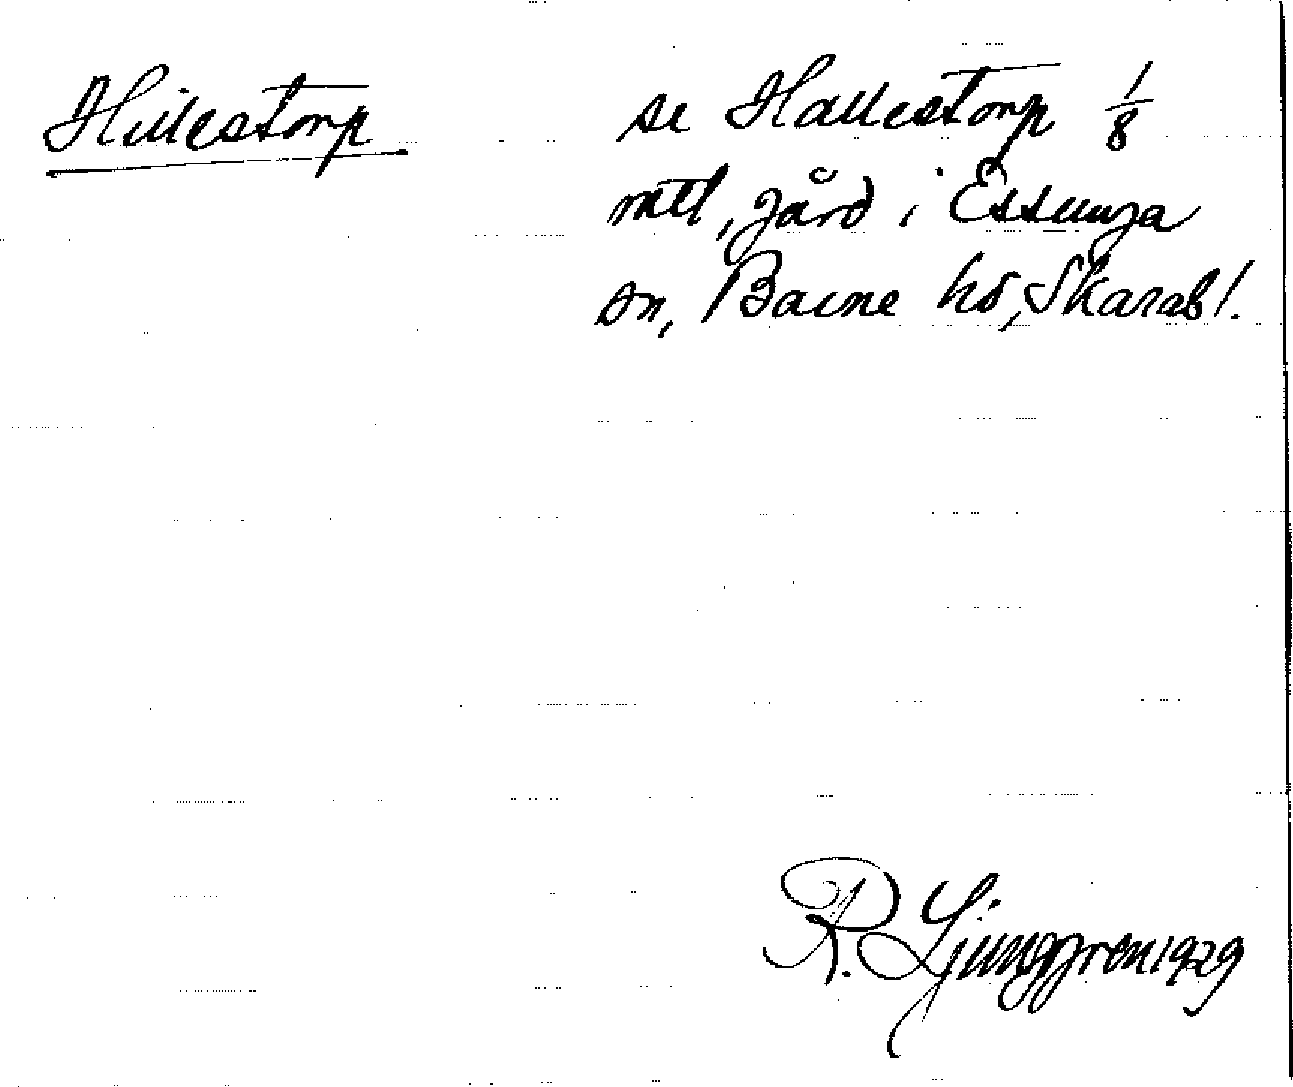 Hillestorp
se Hallestorp 1/8
mtl, gård i Essunga
sn, Barne hd, Skarabl.
R. Ljunggren 1929